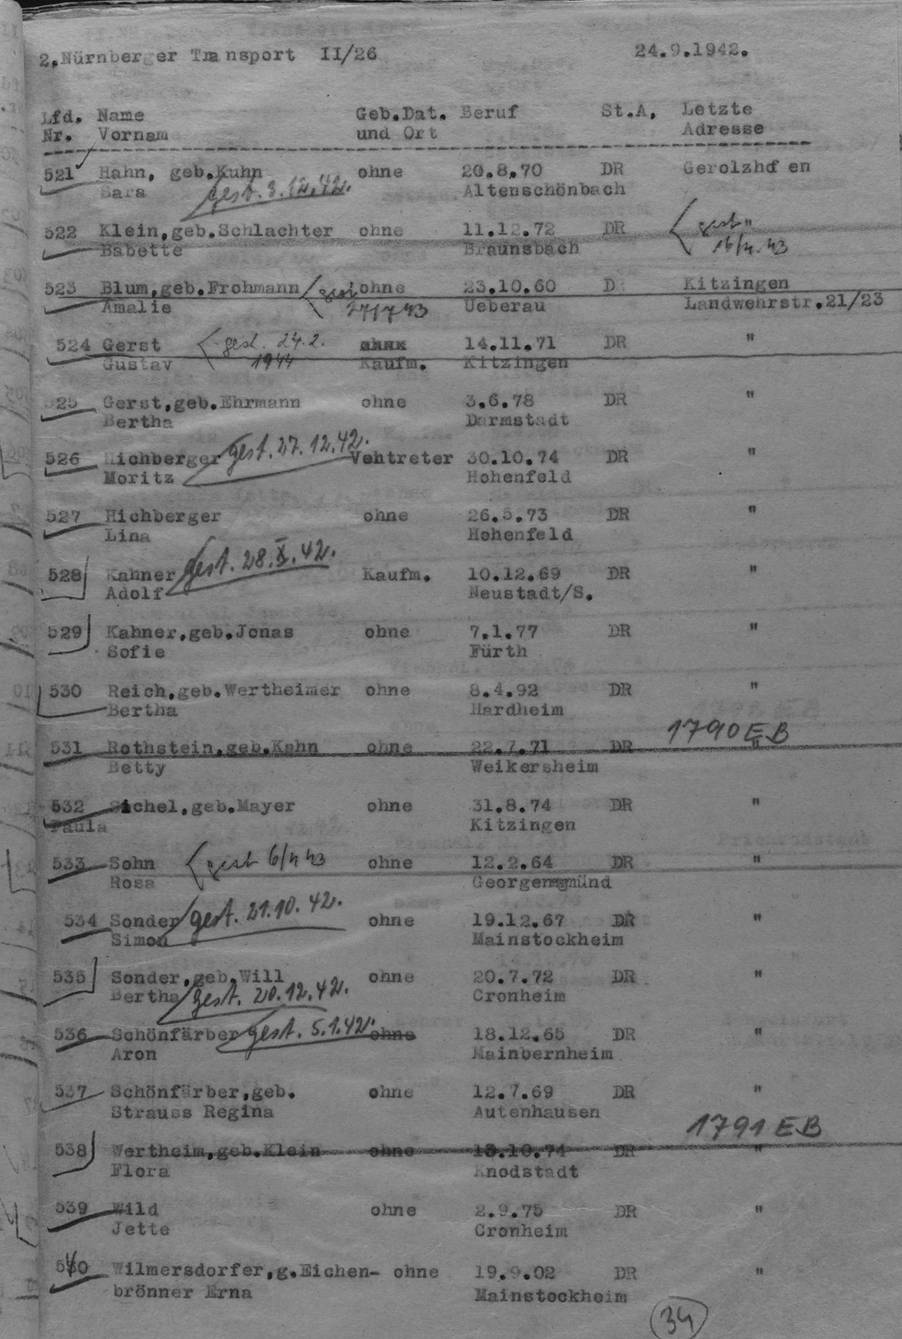 2.Nürnberger Transport II/26 24.9.1942.
Lfd. Name Geb.Dat. Beruf St.A. Letzte
Nr. Vornam und Ort Adresse
521 Hahn, geb.Kuhn ohne 20.8.70 DR Gerolzhof en
Sara gest. 3.12.42. Altenschönbach
522 Klein,geb.Schlachter ohne 11.12.72 DR gest "
Babette Braunsbach 16/4.43
523 Blum,geb.Frohmann gest ohne 23.10.60 D Kitzingen
Amalie 27/7 43 Ueberau Landwehrstr.21/23
524 Gerst gest. 24.2. 14.11.71 DR "
Gustav 1944 Kaufm. Kitzingen
525 Gerst,geb.Ehrmann ohne 3.6.78 DR "
Bertha Darmstadt
526 Hichberger gest. 27.12.42. Vehtreter 30.10.74 DR "
Moritz Hohenfeld
527 Hichberger ohne 26.5.73 DR "
Lina Hohenfeld
528 Kahner gest. 28.X.42. Kaufm. 10.12.69 DR "
Adolf Neustadt/S.
529 Kahner,geb.Jonas ohne 7.1.77 DR "
Sofie Fürth
530 Reich,geb.Wertheimer ohne 8.4.92 DR "
Bertha Hardheim
1790 EB
531 Rothstein,geb.Kahn ohne 22.7.71 DR "
Betty Weikersheim
532 Sichel,geb.Mayer ohne 31.8.74 DR "
Paula Kitzingen
533 Sohn gest 6/4 43 ohne 12.2.64 DR "
Rosa Georgensgmünd
534 Sonder gest. 21.10.42. ohne 19.12.67 DR "
Simon Mainstockheim
535 Sonder,geb.Will ohne 20.7.72 DR "
Bertha gest. 20.12.42. Cronheim
536 Schönfärber gest. 5.1.42. ohne 18.12.65 DR "
Aron Mainbernheim
537 Schönfärber,geb. ohne 12.7.69 DR "
Strauss Regina Autenhausen
1791 EB
538 Wertheim,geb.Klein ohne 13.10.74 DR "
Flora Knodstadt
539 Wild ohne 2.9.75 DR "
Jette Cronheim
540 Wilmersdorfer,g.Eichen- ohne 19.9.02 DR "
brönner Erna Mainstockheim
34